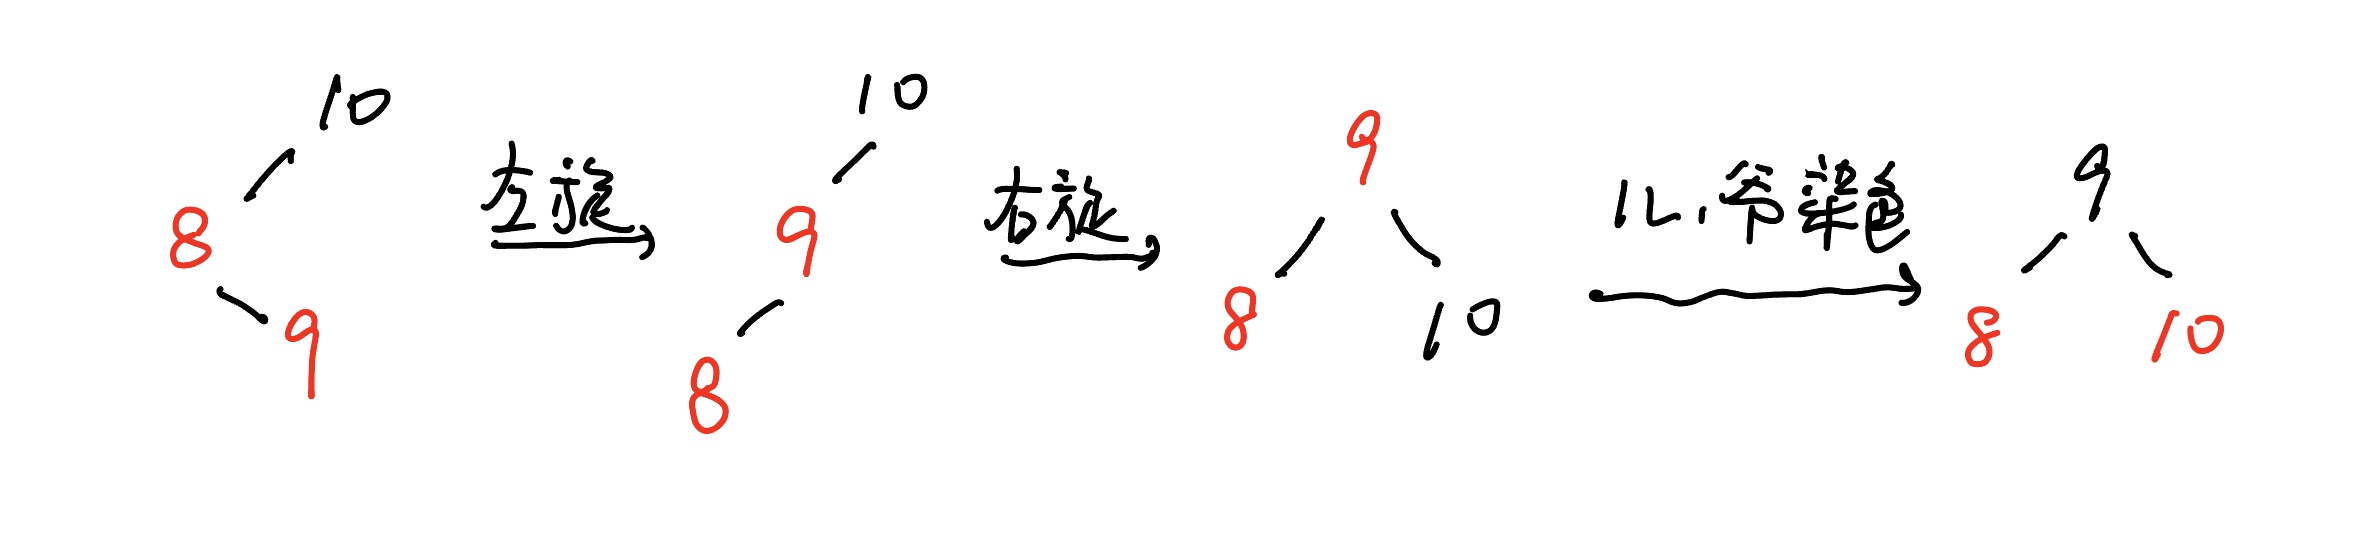 10
8
9
左旋
10
9
8
右旋
9
8
10
儿,爷染色
9
8
10